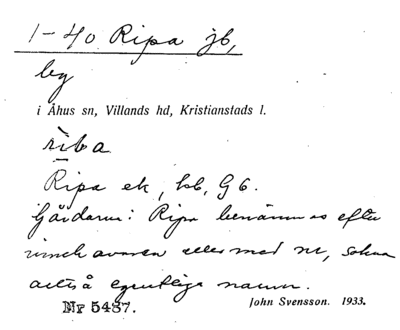 1-40 Ripa jb,
by
i Åhus sn, Villands hd, Kristianstads l.
riba
Ripa ek, kb, G 6.
Gårdarna i Ripa benämnas efter
innehavaren eller med nr, sakna
alltså egentliga namn.
Nr 5487. John Svensson. 1933.